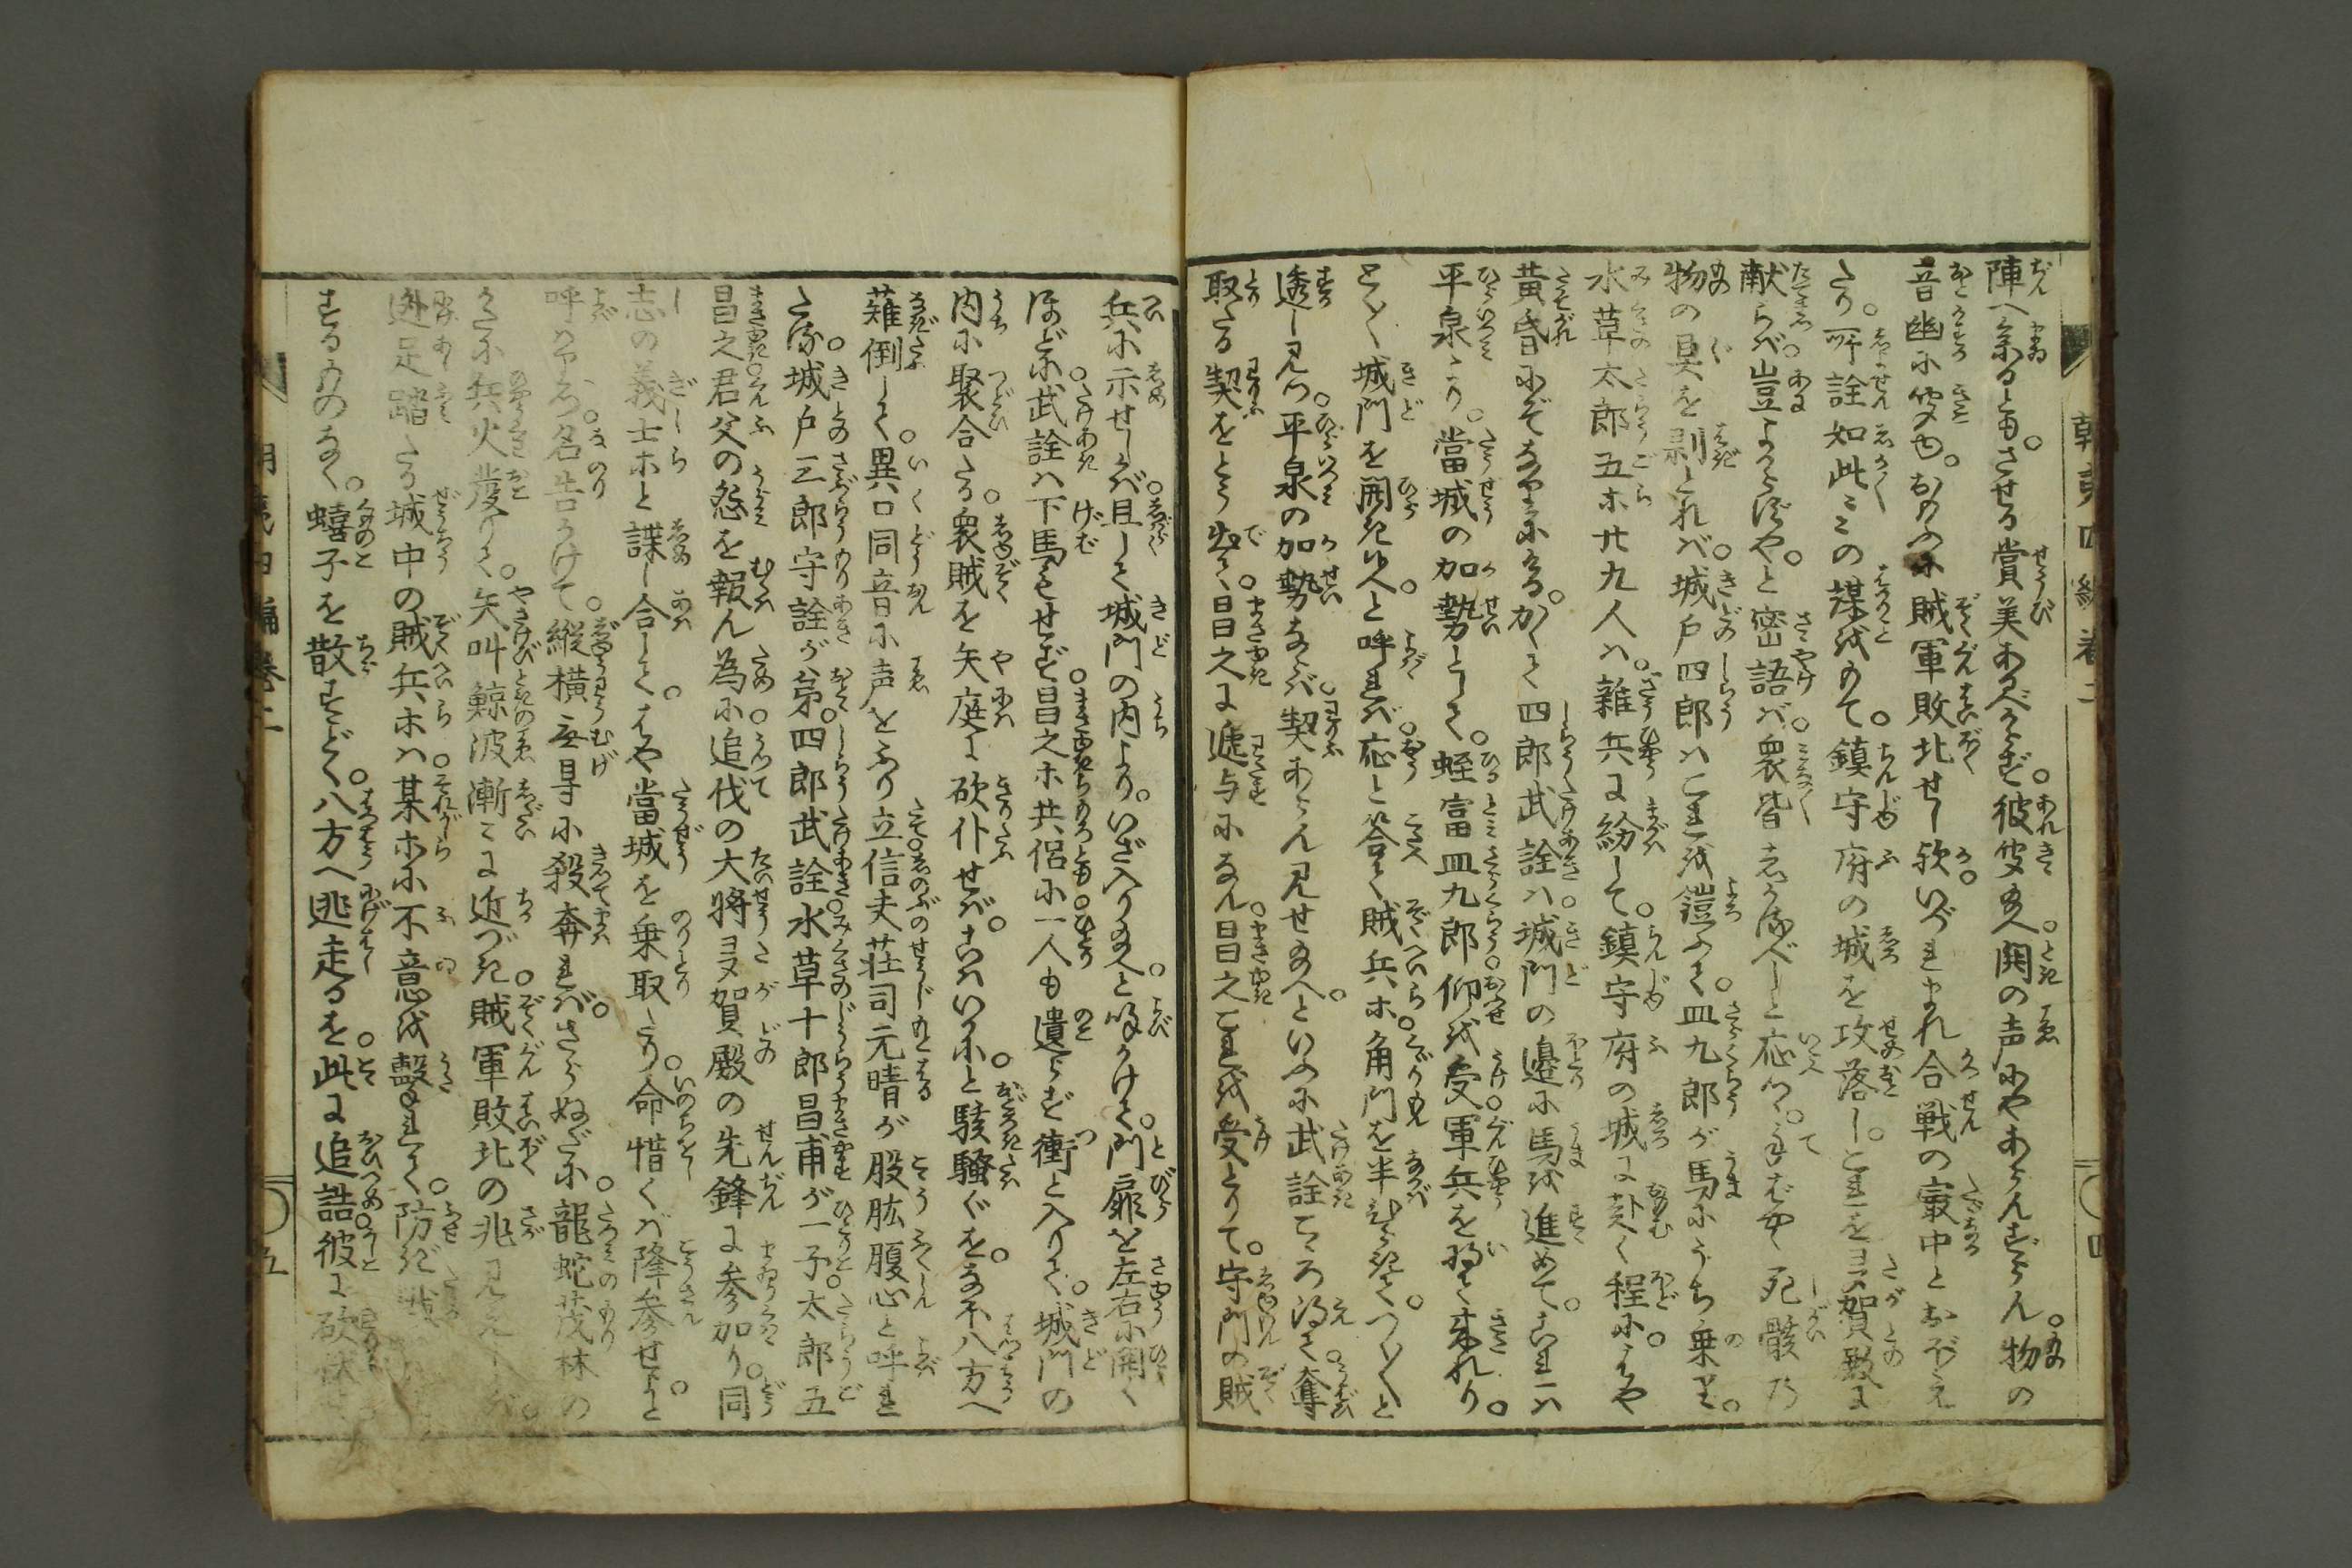 陣へ参るとも。させる賞美あるべからず。彼処聞給へ。鬨の声にやあらんずらん。物の
音幽に聞ゆ。おもふに賊軍敗北せし歟。いづれまれ合戦の最中とおぼえ
たり。所詮如此〻〻の謀をもて。鎮守府の城を攻落し。これを嵯峨賀殿に
献らば豈よからずや。と密語ば。衆皆しかるべしと応つ。手ばやく死骸の
物の具を剥とれば。城戸四郎はこれを鎧ふて。皿九郎が馬にうち乗れば。
水草太郎五ホ廿九人は。雑兵に紛して。鎮守府の城に赴く程に。はや
黄昏にぞなりにける。かくて四郎武詮は。城門の邊に馬を進めて。これは
平泉より。當城の加勢として。蛭富皿九郎仰を受。軍兵を将て来れり。
とく〳〵城門を開き給へと呼れば。応と答て賊兵ホ角門を半ひらきて。つく〴〵と
透し見つ。平泉の加勢ならば。契あらん見せ給へといふに武詮こゝろ得て。奪
取たる契をとう出て。昌之に逓与になん。昌之これを受とりて。守門の賊
兵に示せしかば。且して城門の内より。いざ入り給へと呼かけて。門扉を左右に開く
ほどに。武詮は下馬もせず。昌之ホ共侶に一人も遺らず衝と入りて。城門の
内に聚合たる。衆賊を矢庭に砍仆せば。こはいかにと駭騒ぐを。なほ八方へ
薙倒して。異口同音に声をふり立信夫荘司元晴が股肱腹心と呼れ
たる。城戸三郎守詮が弟。四郎武詮。水草十郎昌甫が一子太郎五
昌之。君父の怨を報ん為に。追伐の大将嵯峨賀殿の先鋒に参加り。同
志の義士ホと諜し合して。はや當城を乗取たり。命惜くば降参せよと
呼はりつゝ。名告かけて。縦横无㝵に殺奔れば。さらぬだに。龍蛇茂林の
かたに兵火発りて。矢叫鯨波漸〻に近づき。賊軍敗北の兆見えしかば。
逃足踏たる城中の賊兵ホは。某ホに不意を撃れて。防ぎ戦
するものなく。蟢子を散すごとく。八方へ逃走るを此に追詰彼に砍伏
朝夷四編巻二
四
朝夷四編巻二
五